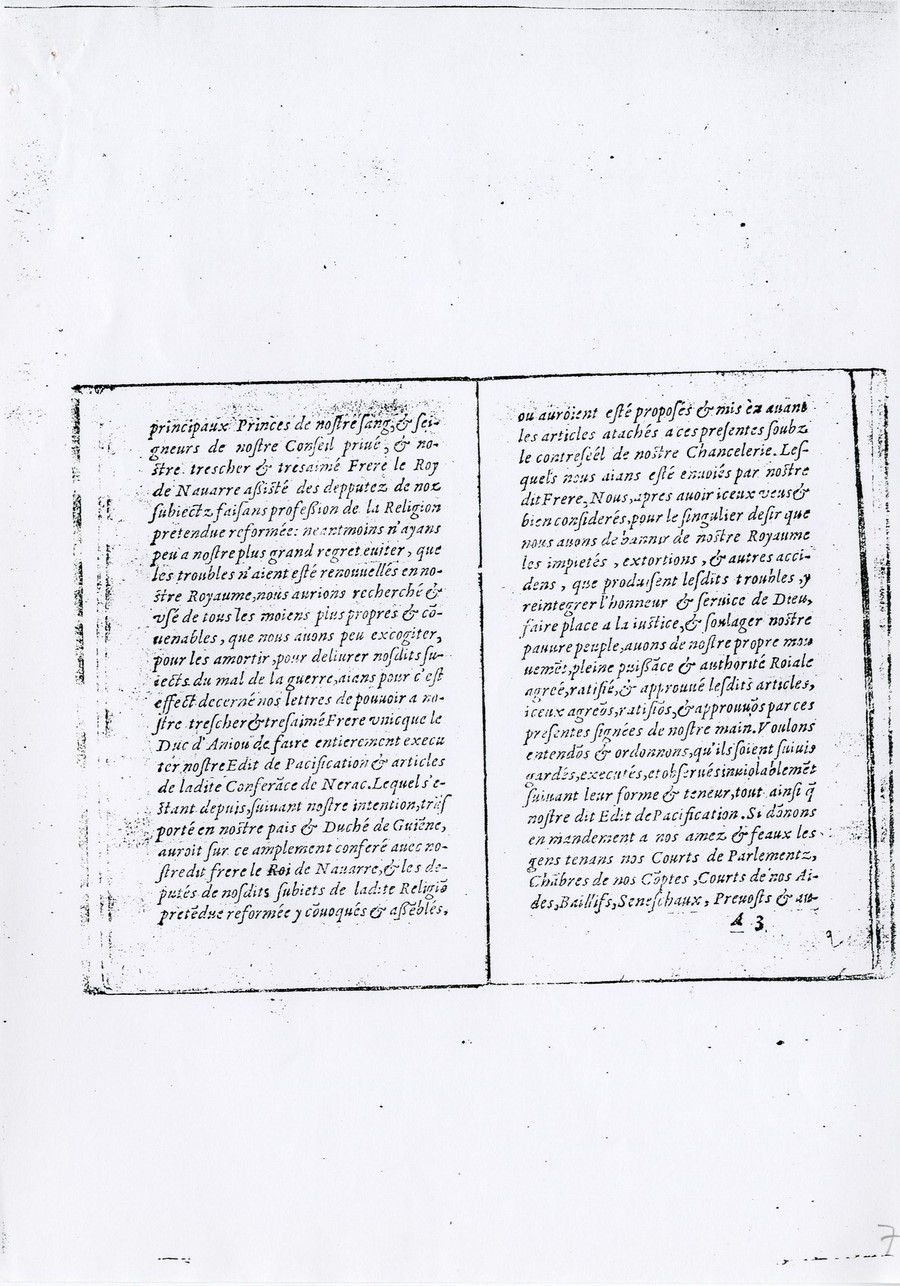 principaux Princes de nostre sang, & sei-
gneurs de nostre Conseil priué, & no-
stre trescher & tresaimé Frere le Roy
de Nauarre assisté des depputez de noz
subiectz faisans profession de la Religion
pretendue reformée: neantmoins n'ayans
peu a nostre plus grand regret euiter, que
les troubles n'aient esté renouuellés en no-
stre Royaume, nous aurions recherché &
vsé de tous les moiens plus propres & cō-
uenables, que nous auons peu excogiter,
pour les amortir, pour deliurer nosdits su-
iects du mal de la guerre, aians pour c'est
effect decerné nos lettres de pouuoir a no-
stre trescher & tresaimé Frere vnicque le
Duc d'Aniou de faire entierement execu
ter nostre Edit de Pacification & articles
de ladite Conferāce de Nerac. Lequel s'e-
stant depuis, suiuant nostre intention, trās
porté en nostre pais & Duché de Guiēne,
auroit sur ce amplement conferé auec no-
stredit frere le Roi de Nauarre, & les de-
putés de nosdits subiets de ladite Religiō
pretēdue reformée y cōuoqués & assēblés,
ou auroient esté proposés & mis en auant
les articles atachés a ces presentes soubz
le contreséel de nostre Chancelerie. Les-
quels nous aians esté enuoiés par nostre
dit Frere, Nous, apres auoir iceux veus &
bien considerés, pour le singulier desir que
nous auons de bannir de nostre Royaume
les impietés, extortions, & autres acci-
dens, que produisent lesdits troubles, y
reintegrer l'honneur & seruice de Dieu,
faire place a la iustice, & soulager nostre
pauure peuple, auons de nostre propre mou
uemēt, pleine puissāce & authorité Roiale
agreé, ratifié, & approuué lesdits articles,
iceux agreōs, ratifiōs, & approuuōs par ces
presentes signées de nostre main. Voulons
entendōs & ordonnons, qu'ils soient suiuis
gardés, executés, et obserués inuiolablemēt
suiuant leur forme & teneur, tout ainsi q̄
nostre dit Edit de Pacification. Si dōnons
en mandement a nos amez & feaux les
gens tenans nos Courts de Parlementz,
Chābres de nos Cōptes, Courts de nos Ai-
des, Baillifs, Seneschaux, Preuosts & au-
A 3
7